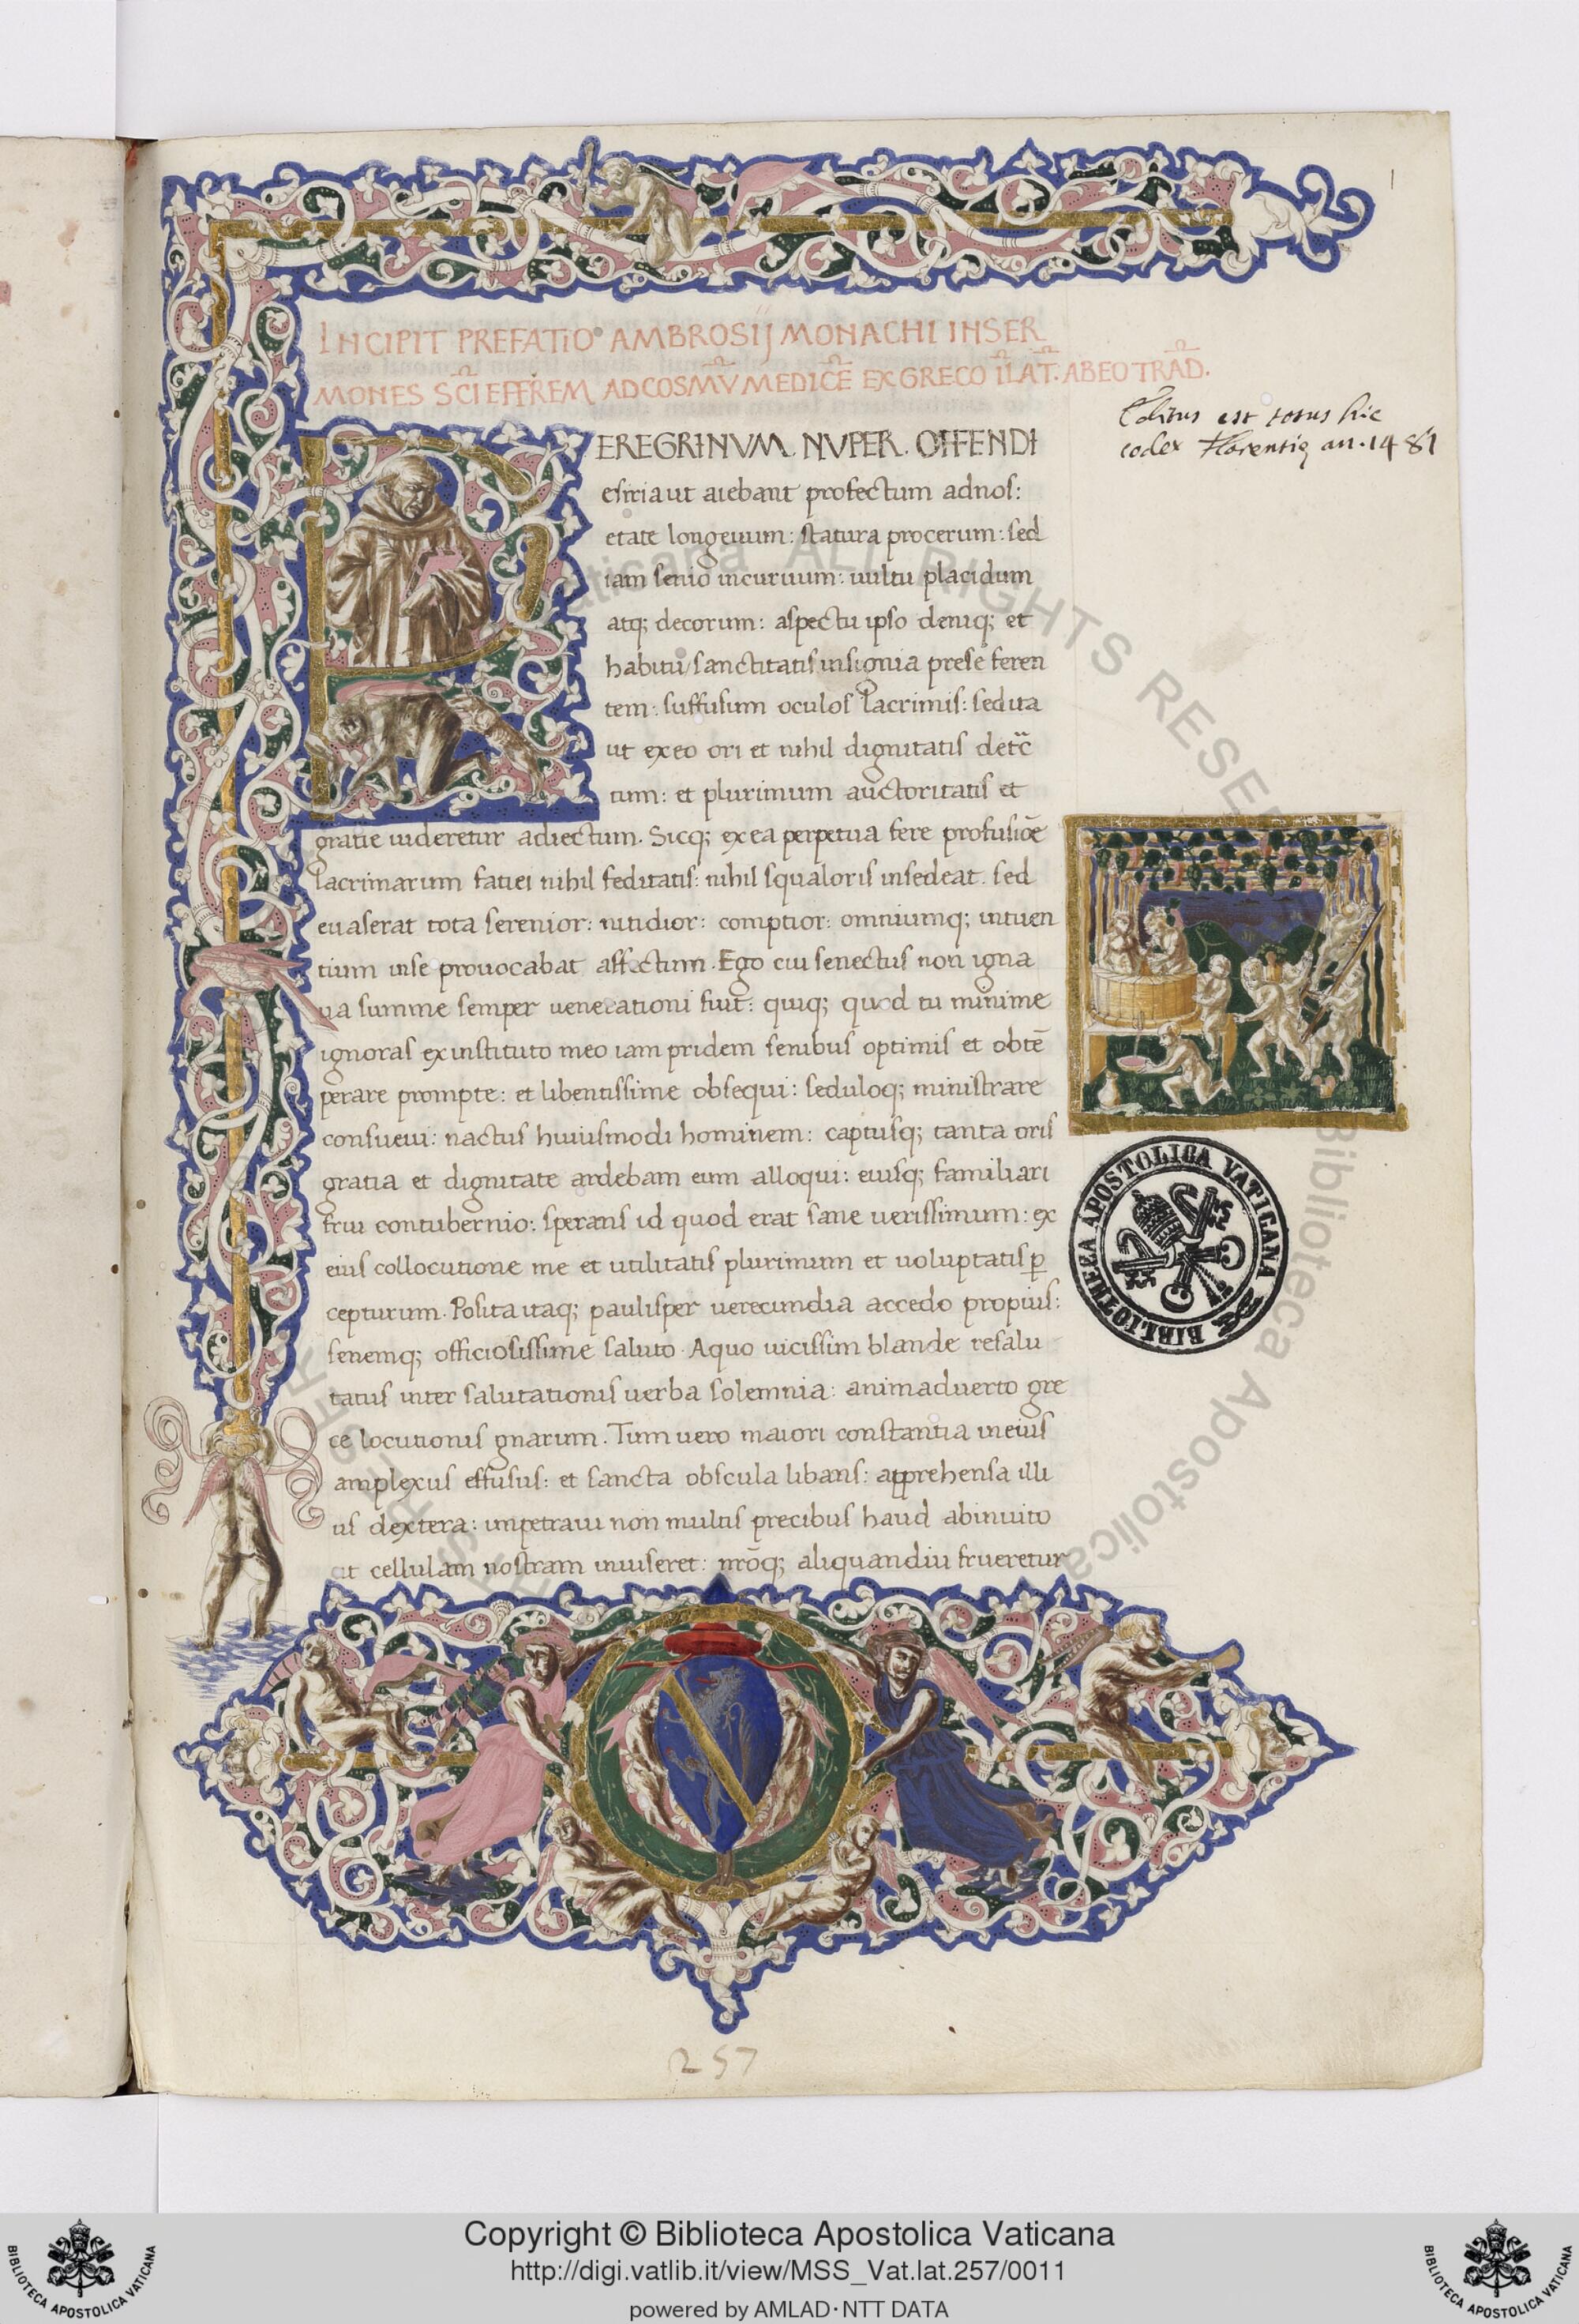 1
INCIPIT PREFATIO AMBROSIJ MONACHI IN SER
MONES SCI EFFREM AD COSMV̄ MEDICĒ EX GRECO I LAT. AB EO TRAD.
Editus est totus hic
codex Florentię an. 1481
PEREGRINVM. NVPER. OFFENDI
e siria ut aiebant profectum ad nos:
etate longeuum: statura procerum: sed
iam senio incuruum: uultu placidum
atq; decorum: aspectu ipso deniq; et
habitu sanctitatis insignia prese feren
tem: suffusum oculos lacrimis: sed ita
ut ex eo ori et nihil dignitatis detc̄
tum: et plurimum auctoritatis et
gratie uideretur adiectum. Sicq; ex ea perpetua fere profusiōe
lacrimarum fatiei nihil feditatis: nihil squaloris insedeat. sed
euaserat tota serenior: nitidior: comptior: omniumq; intuen
tium inse prouocabat affectum. Ego cui senectus non igna
ua summe semper uenerationi fuit: quiq; quod tu minime
ignoras ex instituto meo iam pridem senibus optimis et obtē
perare prompte: et libentissime obsequi: seduloq; ministrare
consueui: nactus huiusmodi hominem: captusq; tanta oris
gratia et dignitate ardebam eum alloqui: eiusq; familiari
frui contubernio: sperans id quod erat sane uerissimum: ex
eius collocutione me et utilitatis plurimum et uoluptatis p̲
cepturum. Posita itaq; paulisper uerecundia accedo propius:
senemq; officiosissime saluto. A quo uicissim blande resalu
tatus inter salutationis uerba solemnia: animaduerto gre
ce locutionis gnarum. Tum uero maiori constantia in eius
amplexus effusus: et sancta obscula libans: apprehensa illi
us dextera: impetraui non multis precibus haud ab inuito
ut cellulam nostram inuiseret: nr̄oq; aliquandiu frueretur
BIBLIOTHECA APOSTOLICA VATICANA
257
Copyright © Biblioteca Apostolica Vaticana
http://digi.vatlib.it/view/MSS_Vat.lat.257/0011
powered by AMLAD·NTT DATA
BIBLIOTECA APOSTOLICA VATICANA
BIBLIOTECA APOSTOLICA VATICANA